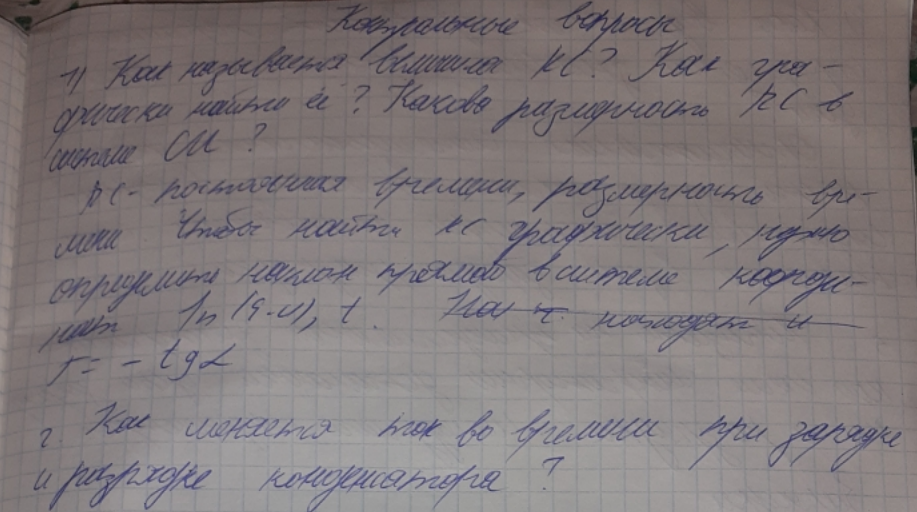 Контрольные вопросы
1) Как называется величина RC? Как гра-
фически найти её? Какова размерность RC в
системе СИ?
RC - постоянная времени, размерность вре-
мени Чтобы найти RC графически, нужно
определить наклон прямой в системе коорди-
нат ln (ε-u), t. находят и
τ = - tgα
2. Как меняется ток во времени при зарядке
и разрядке конденсатора?